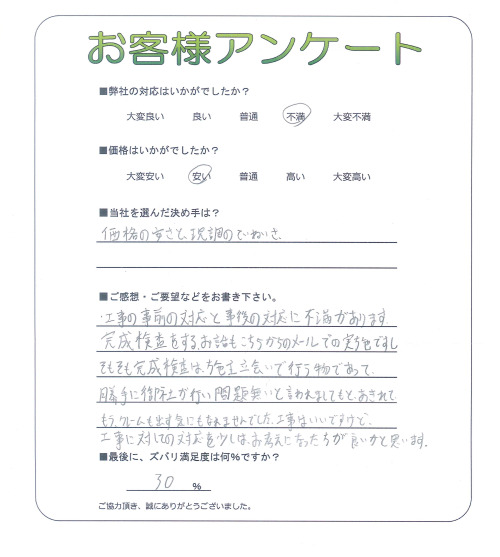 お客様アンケート
■弊社の対応はいかがでしたか？
大変良い 良い 普通 不満 大変不満
■価格はいかがでしたか？
大変安い 安い 普通 高い 大変高い
■当社を選んだ決め手は？
価格の安さと、現調のていねいさ
■ご感想・ご要望などをお書き下さい。
・工事の事前の対応と事後の対応に不満があります
完成検査をするお話もこちらからのメールでの ですし
そもそも完成検査は、施主立会いで行う物であって、
勝手に御社が行い問題無いと言われましてもと、あきれて
もう、クレームも出す気にもなれませんでした。工事はいいですけど、
工事に対しての対応を少しは、お考えになった方が良いかと思います。
■最後に、ズバリ満足度は何%ですか？
30 %
ご協力頂き、誠にありがとうございました。